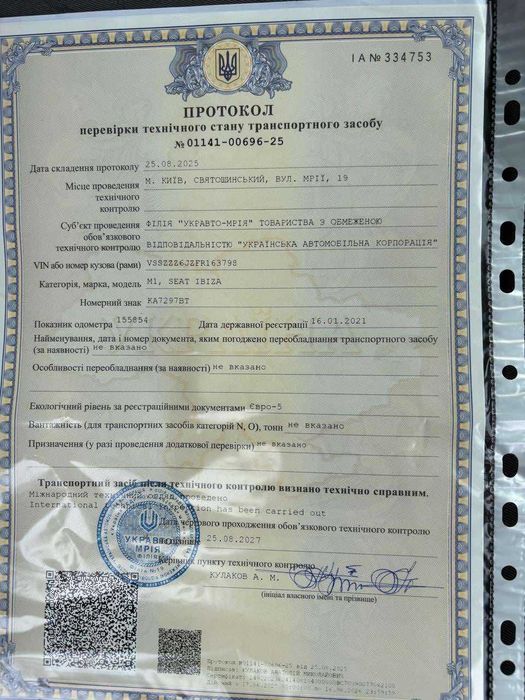 ІА№334753
ПРОТОКОЛ
перевірки технічного стану транспортного засобу
№01141-00696-25
Дата складення протоколу 25.08.2025
Місце проведення М. КИЇВ, СВЯТОШИНСЬКИЙ, ВУЛ. МРІЇ, 19
технічного
контролю
Суб'єкт проведення ФІЛІЯ "УКРАВТО-МРІЯ" ТОВАРИСТВА З ОБМЕЖЕНОЮ
обов'язкового
технічного контролю ВІДПОВІДАЛЬНІСТЮ "УКРАЇНСЬКА АВТОМОБІЛЬНА КОРПОРАЦІЯ"
VIN або номер кузова (рами) VSSZZZ6JZFR163798
Категорія, марка, модель M1, SEAT IBIZA
Номерний знак КА7297ВТ
Показник одометра 155854 Дата державної реєстрації 16.01.2021
Найменування, дата і номер документа, яким погоджено переобладнання транспортного засобу
(за наявності) не вказано
Особливості переобладнання (за наявності) не вказано
Екологічний рівень за реєстраційними документами Євро-5
Вантажність (для транспортних засобів категорій N, O), тонн не вказано
Призначення (у разі проведення додаткової перевірки) не вказано
Транспортний засіб після технічного контролю визнано технічно справним.
Міжнародний технічний огляд проведено
International technical inspection has been carried out
Дата чергового проходження обов'язкового технічного контролю
25.08.2027
Керівник пункту технічного контролю
КУЛАКОВ А. М.
(ініціал власного імені та прізвище)
УКРАВТО
МРІЯ
ФІЛІЯ
Протокол №01141-00696-25 від 25.08.2025
Підписано: КУЛАКОВ АНАТОЛІЙ МИКОЛАЙОВИЧ